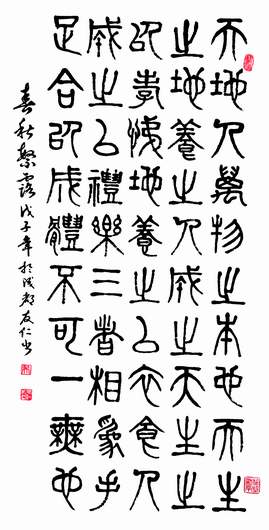 天地人萬物之本也天生
之地養之人成之天生之
以孝悌地養之以衣食人
成之以禮樂三者相為手
足合以成體不可一無也
春秋繁露戊子年於成都友仁书